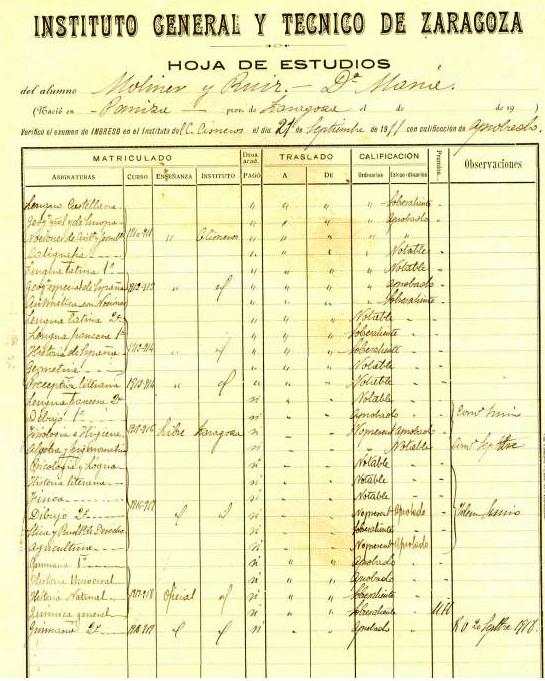 INSTITUTO GENERAL Y TECNICO DE ZARAGOZA
HOJA DE ESTUDIOS
del alumno Moliner y Ruiz.- Dª María.
(Nació en Paniza prov. de Zaragoza el de de 19 )
Verificó el examen de INGRESO en el Instituto de C. Cisneros el día 21 de Septiembre de 1911 con calificación de Aprobado.
MATRICULADO Dros. acad. TRASLADO CALIFICACIÓN Premios. Observaciones
ASIGNATURAS CURSO ENSEÑANZA INSTITUTO PAGÓ A DE Ordinarios Extraordinarios
Lengua Castellana " " " " Sobresaliente
Geogª gral y de Europa " " " " Aprobado
Nociones de Aritª y Geomª 1910-911 " Cisneros " " " " "
Caligrafía " " " " Notable
Lengua latina 1º " " " " Notable
Geogª especial de España 1912-913 " " " " " Aprobado
Aritmética " " " " Sobresaliente
Lengua latina 2º " " " Notable
Lengua francesa 1º " " " Sobresaliente
Historia de España 1913-914 " " " " Sobresaliente
Geometría " " " Notable
Preceptiva literaria " " " " Notable
Lengua francesa 2º sí " " Notable
Dibujo 1º sí " " Aprobado
Fisiología e Higiene 1915-916 Libre Zaragoza sí " " No present Aprobado
Algebra y trigonometría sí " " Notable
Psicología y Lógica sí " " Notable
Historia literaria sí " " Notable
Física sí " " Notable
Dibujo 2º 1916-917 sí " " No present Aprobado
Etica y Rudtos de Derecho sí " " Sobresaliente
Agricultura sí " " No present Aprobado
Gimnasia 1º sí " " Aprobado
Historia Universal sí " " Aprobado
Historia Natural 1917-918 Oficial sí " " Sobresaliente
Química general sí " " Sobresaliente
Gimnasia 2º 1918-919 sí " " Aprobado